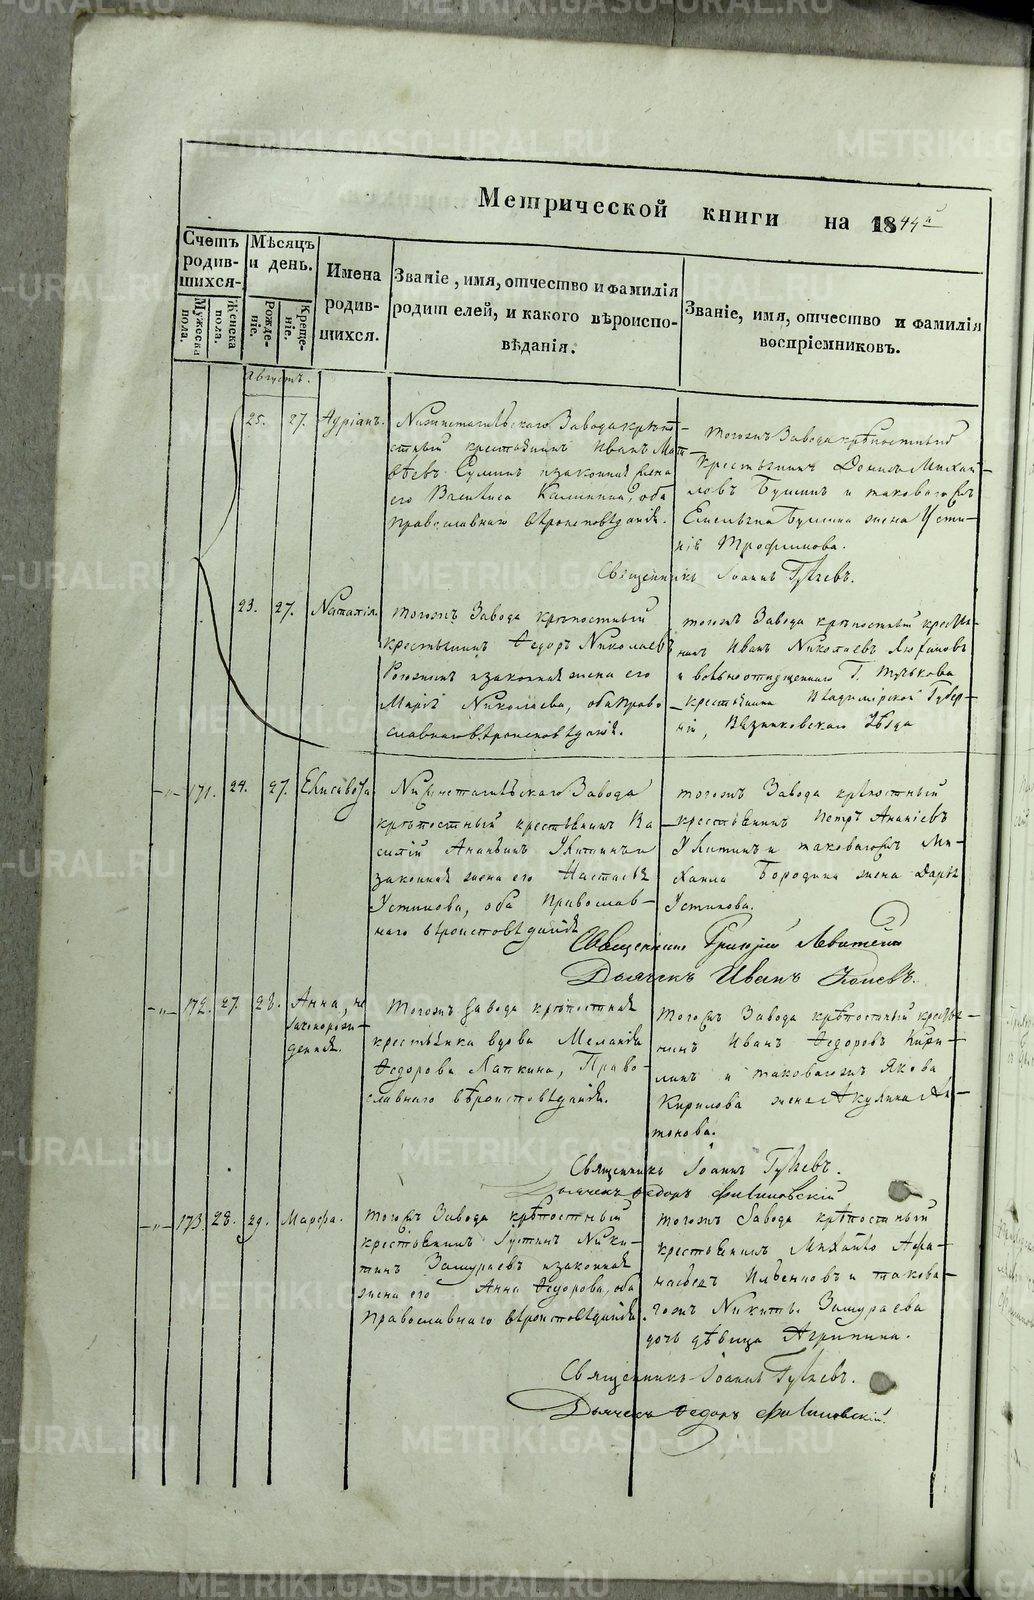 Метрической книги на 1844й
Счетъ родив-шихся.
Мужеска пола.
Женска пола.
Мѣсяцъ и день.
Рожде-ніе.
Креще-ніе.
Имена родив-шихся.
Званіе, имя, отчество и фамилія родителей, и какого вѣроиспо-вѣданія.
Званіе, имя, отчество и фамилія воспріемниковъ.
Августъ.
25. 27. Адріанъ.
Нижнетагильскаго Завода крѣпо-
стный крестьянинъ Иванъ Мат-
вѣевъ и законная жена
его Василиса оба
православнаго вѣроисповѣданія.
тогожъ Завода крѣпостный
крестьянинъ Михаи-
ловъ Бушинъ и таковагожъ
Емельяна Бушина жена Усти-
нія Трофимова.
Священникъ Іоаннъ
23. 27. Наталія.
тогожъ Завода крѣпостный
крестьянинъ Ѳедоръ Николаевъ
и законная жена его
Марія Николаева, оба право-
славнаго вѣроисповѣданія.
тогожъ Завода крѣпостный кресть-
нинъ Иванъ Николаевъ
и вольноотпущеннаго Г.
крестьянина Владимірской Губер-
ніи, Вязниковскаго Уѣзда
-"- 171. 24. 27. Елисавета
Нижнетагильскаго Завода
крѣпостный крестьянинъ Ва
силій Ананьинъ Уткинъ и
законная жена его Настасья
Устинова, оба Православ-
наго вѣроисповѣданія
тогожъ Завода крѣпостный
крестьянинъ Петръ Ананіевъ
и таковагожъ Ми-
хаила Бородина жена Дарья
Устинова.
Священникъ Григорій Левитскій
Дьячекъ Иванъ Попевъ.
-"- 172. 27. 28. Анна, не
законорож-
денная.
тогожъ Завода крѣпостная
крестьянка вдова Меланія
Ѳедорова Лапкина, Право-
славнаго вѣроисповѣданія.
тогожъ Завода крѣпостный кресть-
нинъ Иванъ Ѳедоровъ Кири-
линъ и таковагожъ Якова
Кирилова жена Акулина Ан-
тонова.
Священникъ Іоаннъ
Дьячекъ Ѳедоръ Филиповскій
-"- 173. 28. 29. Марѳа.
тогожъ Завода крѣпостный
крестьянинъ Устинъ Ники-
тинъ Зашураевъ и законная
жена его Анна Ѳедорова, оба
Православнаго вѣроисповѣданія.
тогожъ Завода крѣпостный
крестьянинъ Михайло Афа-
насьевъ и такова-
гожъ Никиты Зашураева
дочь дѣвица Агрипина.
Священникъ Іоаннъ
Дьячекъ Ѳедоръ Филиповскій.
METRIKI.GASO-URAL.RU